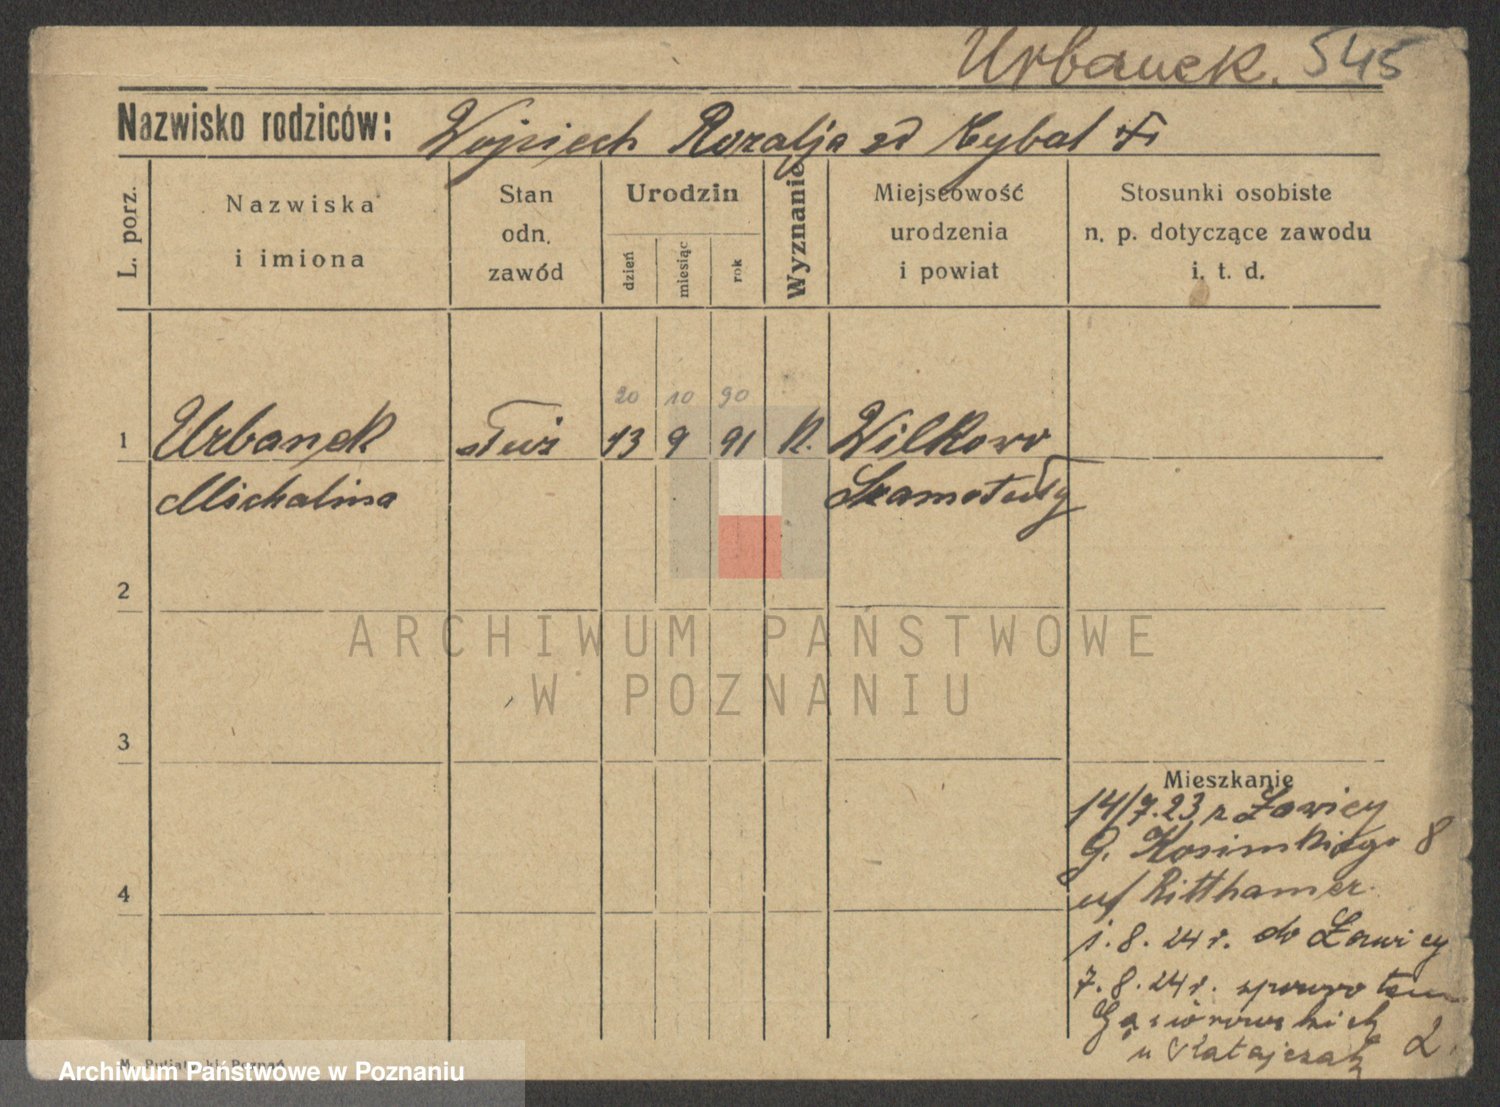 Urbanek. 545
Nazwisko rodziców: Wojciech Rozalja zd Cybal
L. porz.
Nazwiska
i imiona
Stan
odn.
zawód
Urodzin
dzień
miesiąc
rok
Wyznanie
Miejscowość
urodzenia
i powiat
Stosunki osobiste
n. p. dotyczące zawodu
i. t. d.
20 10 90
1 Urbanek służ 13 9 91 K. Wilkowo
Michalina Szamotuły
2
ARCHIWUM PAŃSTWOWE
W POZNANIU
3
Mieszkanie
14/7.23 z Ławicy
G. Kosinskiego 8
u/ Ritthamer
1. 8. 24 r. do Ławicy
4
7. 8. 24 r. spowrotem
Gąsiorowskich 2.
u Ratajczak
M. Putiatycki Poznań
Archiwum Państwowe w Poznaniu